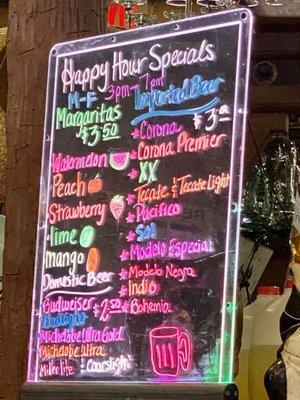 Happy Hour Specials
3pm - 7pm
M-F
Margaritas
$3.50
Watermelon
Peach
Strawberry
lime
mango
Domestic Beer
Budweiser $2.50
Budlight
Michelobe Ultra Gold
Michelobe Ultra
Miller lite & Coorslight
Imported Beer
$3 ea
* Corona
* Corona Premier
* XX
* Tecate & Tecate Light
* Pacifico
* Sol
* Modelo Especial
* Modelo Negra
* Indio
* Bohemia